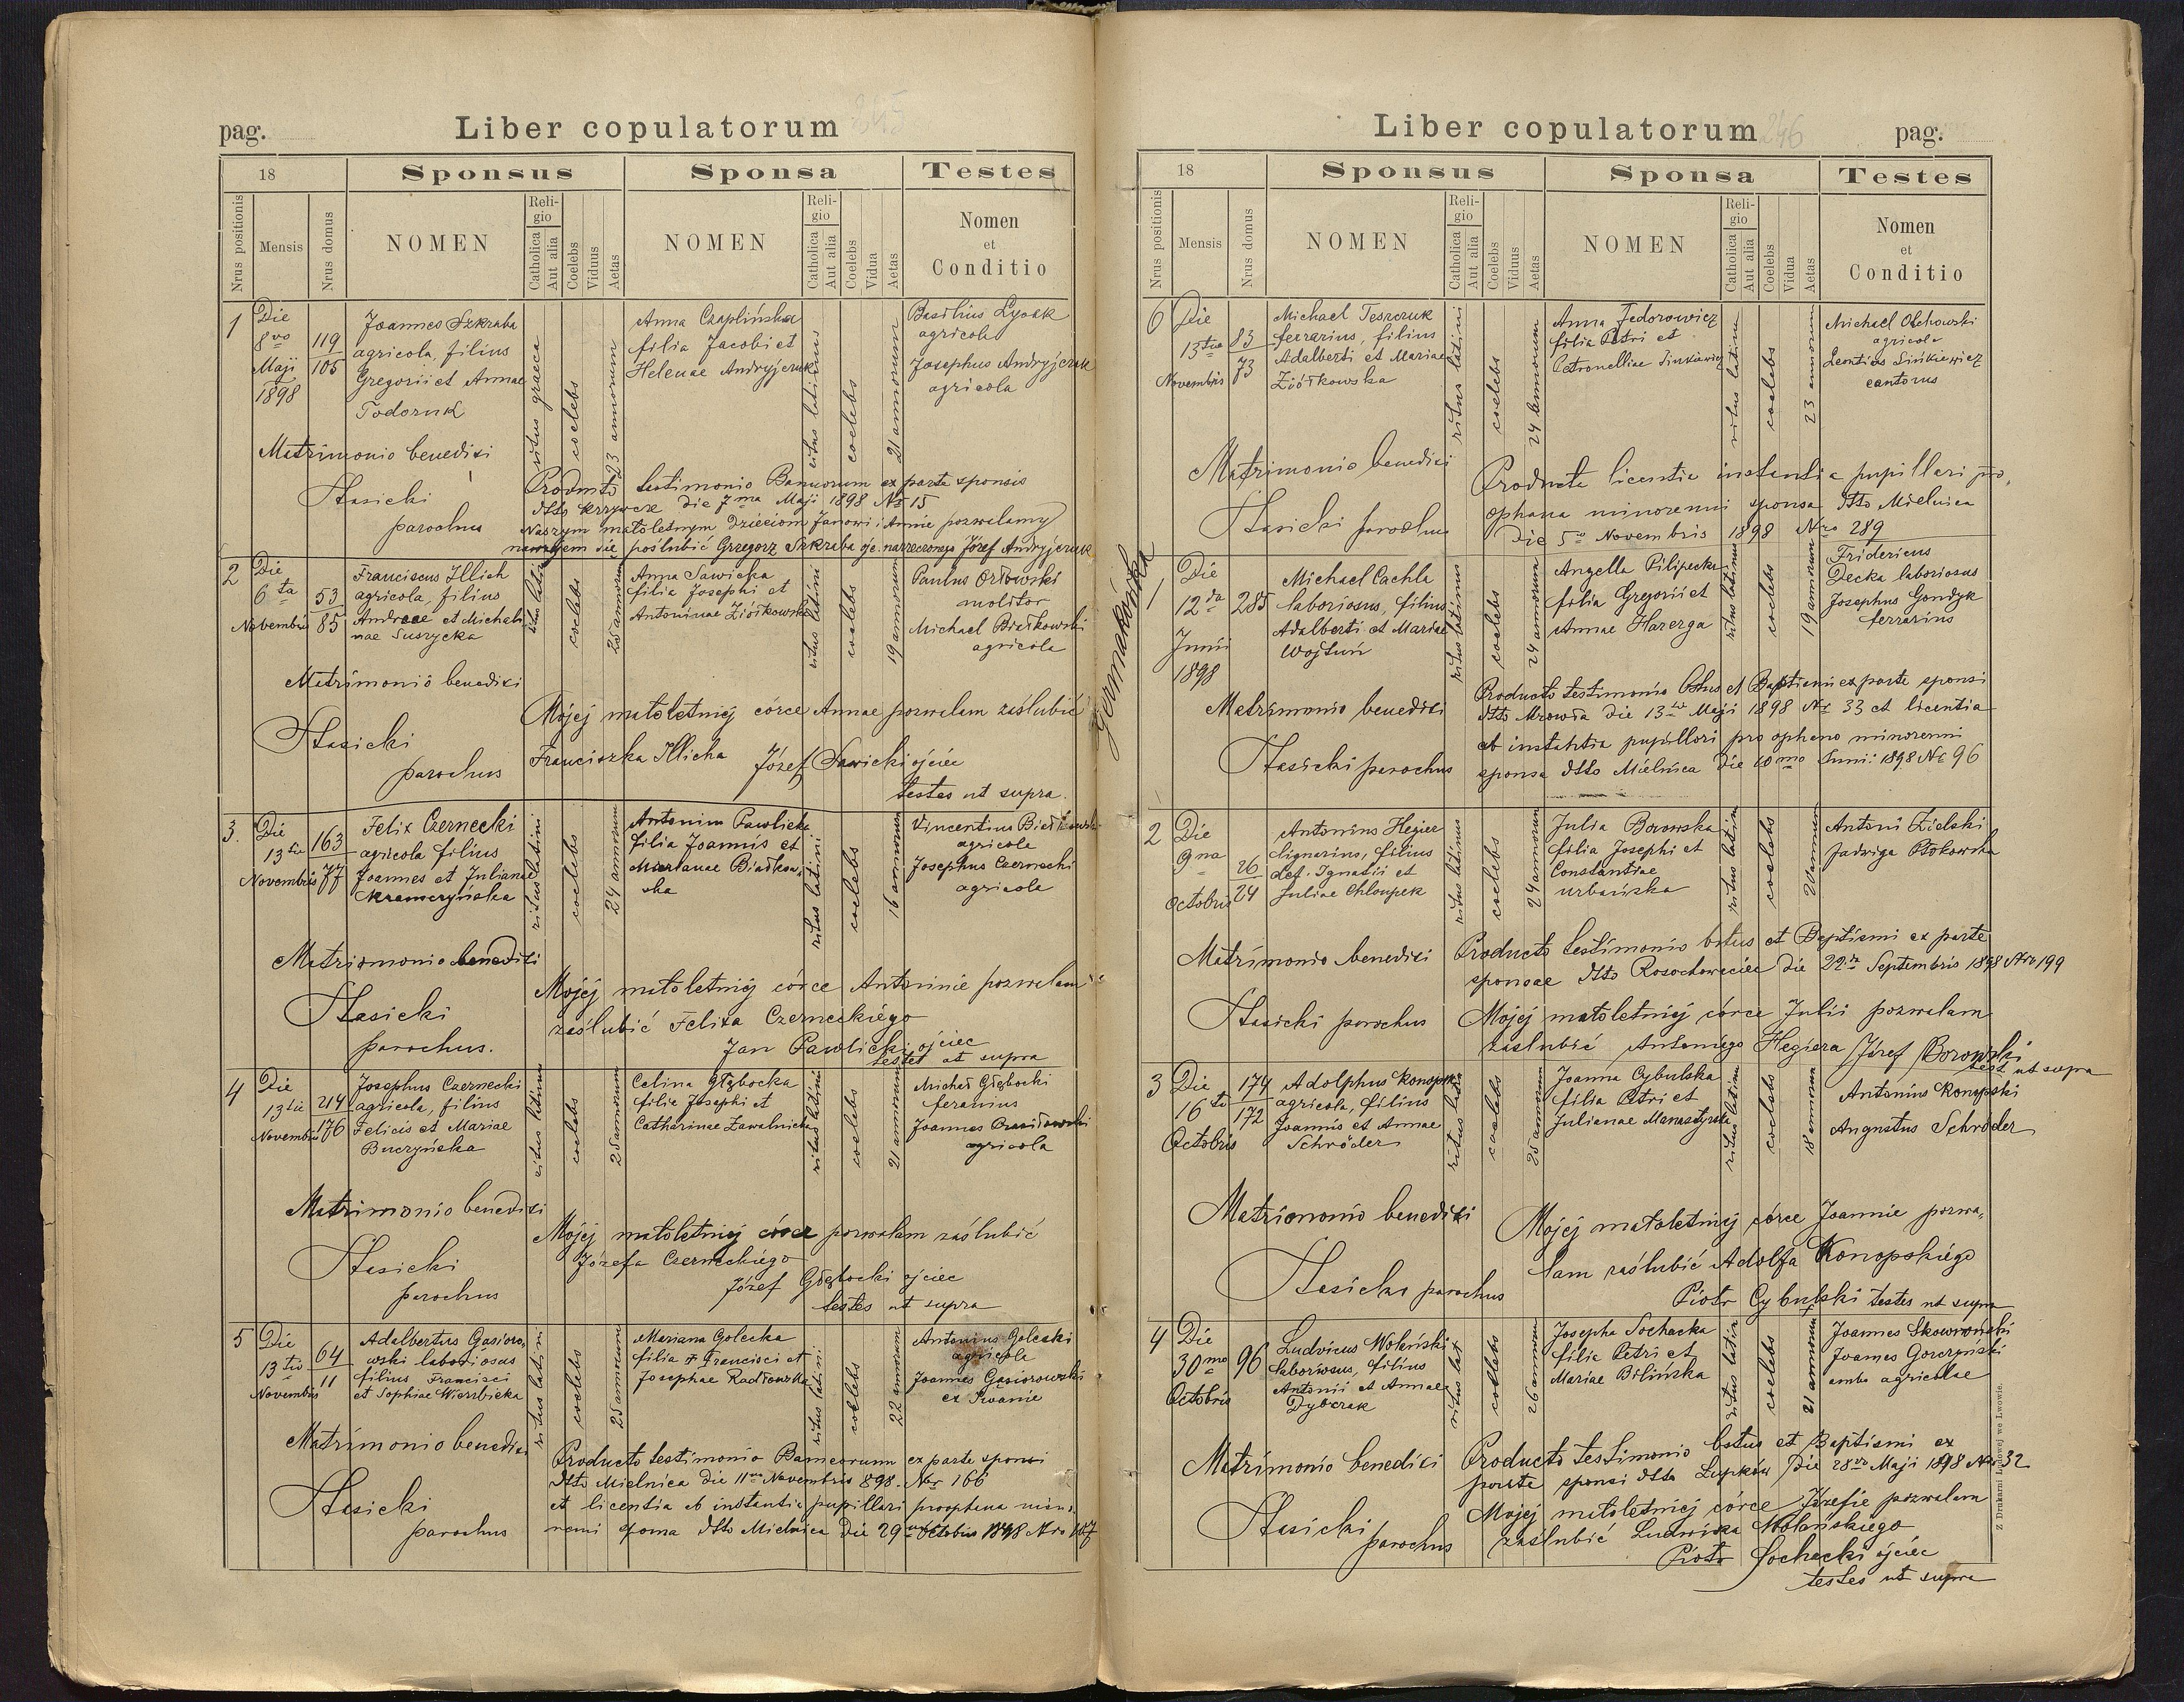 pag.
Liber copulatorum
18
Sponsus
Sponsa
Testes
Nrus positionis
Mensis
Nrus domus
NOMEN
Religio
Catholica
Aut alia
Coelebs
Viduus
Aetas
NOMEN
Religio
Catholica
Aut alia
Coelebs
Vidua
Aetas
Nomen
et
Conditio
1
Die
8vo
Maji
1898
119
105
Joannes Szkraba
agricola, filius
Gregorii et Annae
Todoruk
ritus graeca
coelebs
23 annorum
Anna Czaplińska
filia Jacobi et
Helenae Andryjczuk
ritus latinus
coelebs
21 annorum
Basilius Lysak
agricola
Josephus Andryjczuk
agricola
Matrimonio benedixi
Stasicki
parochus
Producto testimonio Bannorum ex parte sponsis
dtto Krzywcze die 7ma Maji 1898 No 15
Naszym małoletnym dzieciom Janowi i Annie pozwalamy
nawzajem się poślubić Grzegorz Szkraba ojc. narzeczonego Józef Andryjczuk
2
Die
6ta
Novembris
53
85
Franciscus Illich
agricola, filius
Andreae et Michali
nae Suszycka
ritus latini
coelebs
25 annorum
Anna Sawicka
filia Josephi et
Antoninae Ziółkowska
ritus latini
coelebs
19 annorum
Paulus Orłowski
molitor
Michael Białkowski
agricola
Matrimonio benedixi
Stasicki
parochus
Mojéj małoletniéj córce Annae pozwalam zaślubić
Franciszka Illicha Józef Sawicki ojciec
testes ut supra
3.
Die
13tia
Novembris
163
77
Felix Czernecki
agricola filius
Joannes et Julianae
Kramczyńska
ritus latini
coelebs
24 annorum
Antonina Pawlicka
filia Joannis et
Marianae Białkow,
ska
ritus latini
coelebs
16 annorum
Vincentius Białkowski
agricola
Josephus Czernecki
agricola
Matrimonio benedixi
Stasicki
parochus.
Mojéj małoletniéj córce Antoninie pozwalam
zaślubić Felixa Czerneckiégo
Jan Pawlicki ojciec
testet ut supra
4
Die
13tia
Novembris
214
176
Josephus Czernecki
agricola, filius
Felicis et Mariae
Burczyńska
ritus latinus
coelebs
25 annorum
Celina Głębocka
filia Josephi et
Catharinae Zawalnicka
ritus latini
coelebs
21 annorum
Michał Głębocki
ferarius
Joannes
agricola
Matrimonio benedixi
Stasicki
parochus
Mojéj małoletniéj córce pozwalam zaślubić
Józefa Czerneckiégo
Józef Głębocki ojciec
testes ut supra
5
Die
13tio
Novembris
64
11
Adalbertus Gąsioro,
wski laboriosus
filius Francisci
et Sophiae Wierzbicka
ritus latini
coelebs
25 annorum
Mariana Golecka
filia Francisci et
Josephae Radłowska
ritus latini
coelebs
22 annorum
Antonius Golecki
agricola
Joannes Gąsiorowski
ex Iwanie
Matrimonio benedixi
Stasicki
parochus
Producto testimonio Banneorum ex parte sponsi
dtto Mielnica die 11ma Novembris 898. Nr 166
et licentia ab instantia pupillari proophana mino,
renni sponsa dtto Mielnica die 29 Octobris 1898 Nro 167
Liber copulatorum
246
pag.
18
Sponsus
Sponsa
Testes
Nrus positionis
Mensis
Nrus domus
NOMEN
Religio
Catholica
Aut alia
Coelebs
Viduus
Aetas
NOMEN
Religio
Catholica
Aut alia
Coelebs
Vidua
Aetas
Nomen
et
Conditio
6
Die
13tia
Novembris
83
73
Michael Teszczuk
ferrarius, filius
Adalberti et Mariae
Ziółkowska
ritus latini
coelebs
24 annorum
Anna Fedorowicz
filia Petri et
Petronelliae Sinkiewicz
ritus latini
coelebs
23 annorum
Michael Olchowski
agricola
Leontius Sinkiewicz
cantorus
Matrimonio benedixi
Stasicki parochus
Producta licentia instantia pupillari pro,
ophana minorenni sponsa dtto Mielnica
die 5ta Novembris 1898 Nro 289
Germakówka
1
Die
12da
Junii
1898
285
Michael Cachla
laboriosus, filius
Adalberti et Mariae
Wojtuń
ritus latinus
coelebs
24 annorum
Angella Pilipecka
filia Gregorii et
Annae Harerga
ritus latinus
coelebs
19 annorum
Fridericus
Decka laboriosus
Josephus Gondyk
ferrarius
Matrimonio benedixi
Stasicki parochus
Producto testimonio Ostus et Baptismi ex parte sponsi
dtto Mrowla die 13tia Maji 1898 No 33 et licentia
ab instantia pupillari pro ophano minorenni
sponsa dtto Mielnica die 10mo Junii 1898 No 96
2
Die
9na
Octobris
26
24
Antonius Hegier
lignarius, filius
def. Ignatii et
Juliae Chloupek
ritus latinus
coelebs
24 annorum
Julia Borowska
filia Josephi et
Constantiae
Urbańska
ritus latini
coelebs
20 annorum
Antoni Zielski
Jadwiga Płokowska
Matrimonio benedixi
Stasicki parochus
Producto testimonio Ostus et Baptismi ex parte
sponsae dtto Rosochowaciec die 22da Septembris 1898 Nro 199
Mojéj małoletniéj córce Julii pozwalam
zaślubić Antoniégo Hegiera Józef Borowski
test ut supra
3
Die
16ta
Octobris
174
172
Adolphus Konopski
agricola, filius
Joannis et Annae
Schröder
ritus latini
coelebs
25 annorum
Joanna Cybulska
filia Petri et
Julianae Manastyrska
ritus latini
coelebs
18 annorum
Antonius Konopski
Augustus Schröder
Matrimonio benedixi
Stasicki parochus
Mojéj małoletniéj córce Joannie pozwa,
lam zaślubić Adolfa Konopskiégo
Piotr Cybulski testes ut supra
4
Die
30ma
Octobris
96
Ludvicus Wolański
laboriosus, filius
Antonii et Annae
Dybczak
ritus lat
coelebs
26 annorum
Josepha Sochacka
filia Petri et
Mariae Bilińska
ritus latini
coelebs
21 annorum
Joannes Skowroński
Joannes Gorczyński
ambo agricolae
Matrimonio benedixi
Stasicki
parochus
Producto testimonio Ostus et Baptismi ex
parte sponsi dtto Łupków die 28va Maji 1898 Nr 32
Mojéj małoletniéj córce Józefie pozwalam
zaślubić Ludwika Wolańskiego
Piotr Sochacki ojciec
testes ut supra
Z Drukarni Ludowej we Lwowie.